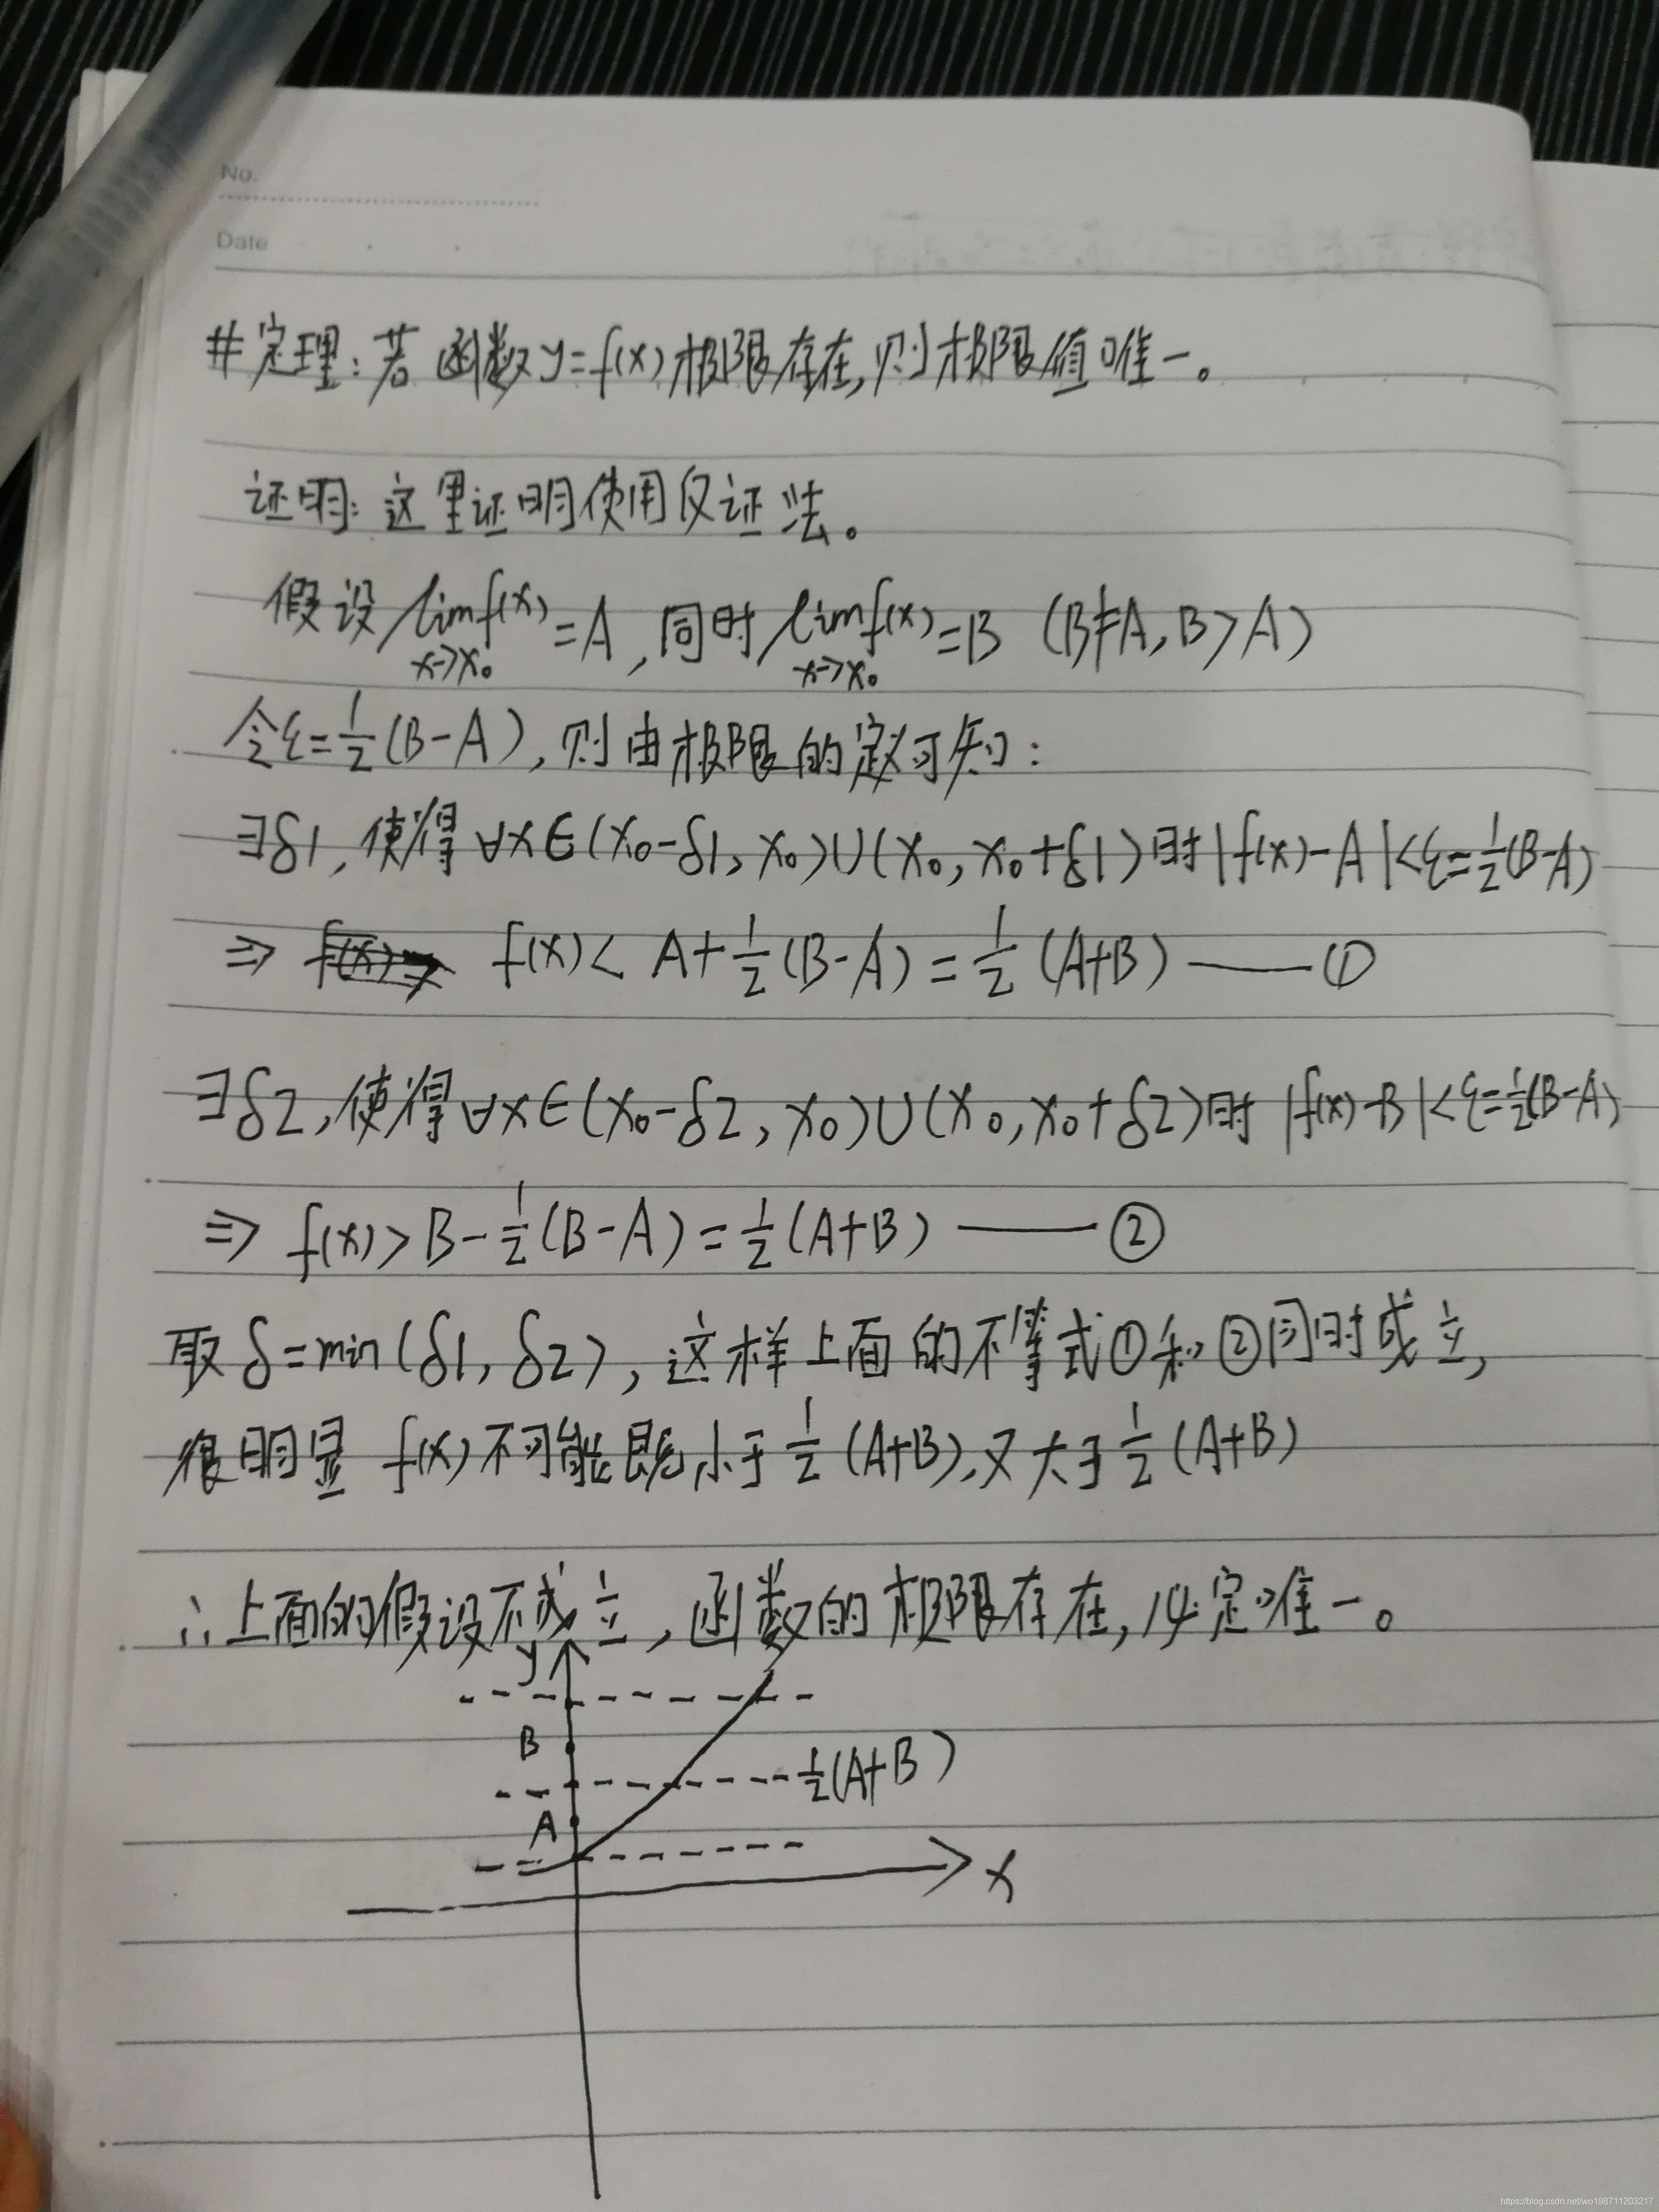 No.
Date
#定理：若函数y=f(x)极限存在,则极限值唯一。
证明：这里证明使用反证法。
假设 lim f(x) = A, 同时 lim f(x) = B (B≠A, B>A)
x→x₀ x→x₀
令ξ=½(B-A), 则由极限的定义可知：
∃δ1, 使得∀x∈(x₀-δ1, x₀)∪(x₀, x₀+δ1)时|f(x)-A|<ξ=½(B-A)
⇒ f(x)< A+½(B-A)=½(A+B) —— ①
∃δ2, 使得∀x∈(x₀-δ2, x₀)∪(x₀, x₀+δ2)时 |f(x)-B|<ξ=½(B-A)
⇒ f(x)>B-½(B-A)=½(A+B) —— ②
取δ=min(δ1, δ2), 这样上面的不等式①和②同时成立,
很明显 f(x)不可能既小于½(A+B),又大于½(A+B)
∴上面的假设不成立, 函数的极限存在,必定唯一。
y
B
½(A+B)
A
x
https://blog.csdn.net/wo198711203217